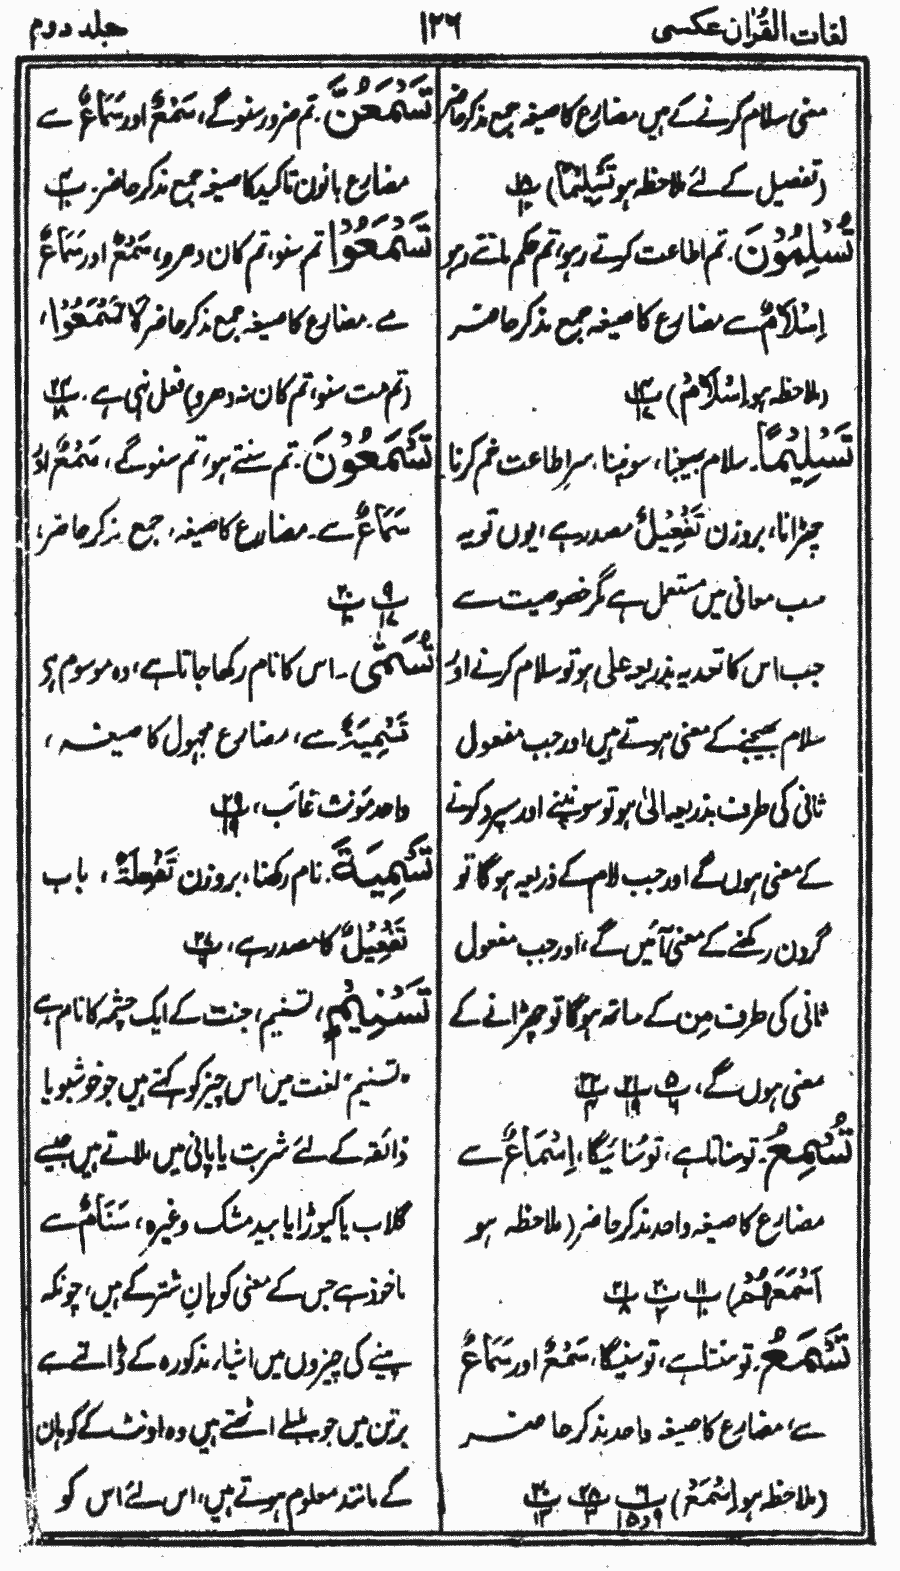 لغات القرآن عکسی
۱۲۶
جلد دوم
معنی سلام کرنے کے ہیں مضارع کا صیغہ جمع مذکر حاضر
(تفصیل کے لئے ملاحظہ ہو تَسْلِیْمًا) ۱۵/۱۰
تُسْلِمُوْنَ۔ تم اطاعت کرتے رہو، تم حکم مانتے رہو
اِسْلَامٌ سے مضارع کا صیغہ جمع مذکر حاضر
(ملاحظہ ہو اِسْلَامُ) ۱۴/۱۷
تَسْلِیْمًا۔ سلام بھیجنا، سونپنا، سر اطاعت خم کرنا
چڑانا، بروزن تَفْعِیْلٌ مصدر ہے، یوں تو یہ
سب معانی میں مستعمل ہے مگر خصوصیت سے
جب اس کا تعدیہ بذریعہ علی ہو تو سلام کرنے اور
سلام بھیجنے کے معنی ہوتے ہیں اور جب مفعول
ثانی کی طرف بذریعہ الیٰ ہو تو سونپنے اور سپرد کرنے
کے معنی ہوں گے اور جب لام کے ذریعہ ہوگا تو
گردن رکھنے کے معنی آئیں گے، اور جب مفعول
ثانی کی طرف مِن کے ساتھ ہوگا تو چھڑانے کے
معنی ہوں گے، ۵/۶ ۲۱/۱۹ ۲۲/۴
تُسْمِعُ۔ تو سناتا ہے، تو سُنائیگا، اِسْمَاعٌ سے
مضارع کا صیغہ واحد مذکر حاضر (ملاحظہ ہو
اَسْمَعَهُمْ) ۱۱/۱۰ ۲۰/۲ ۲۱/۸
تَسْمَعُ۔ تو سنتا ہے، تو سنیگا، سَمْعٌ اور سَمَاعٌ
سے، مضارع کا صیغہ واحد مذکر حاضر
(ملاحظہ ہو اِسْمَعْ) ۲۶/۹و۱۵ ۲۵/۳ ۳۰/۱۳
تَسْمَعُنَّ۔ تم ضرور سنو گے، سَمْعٌ اور سَمَاعٌ سے
مضارع بانون تاکید کا صیغہ جمع مذکر حاضر۔ ۴/۱۰
تَسْمَعُوْا تم سنو، تم کان دھرو، سَمْعٌ اور سَمَاعٌ
سے۔ مضارع کا صیغہ جمع مذکر حاضر لَا تَسْمَعُوْا،
(تم مت سنو، تم کان نہ دھرو) فعل نہی ہے۔ ۲۴/۱۸
تَسْمَعُوْنَ۔ تم سنتے ہو، تم سنو گے، سَمْعٌ اور
سَمَاعٌ سے۔ مضارع کا صیغہ، جمع مذکر حاضر،
۹/۱۷ ۲۰/۱۰
تُسَمّٰی۔ اس کا نام رکھا جاتا ہے، وہ موسوم ہے
تَسْمِیَۃٌ سے، مضارع مجہول کا صیغہ،
واحد مؤنث غائب، ۲۹/۱۹
تَسْمِیَۃً۔ نام رکھنا، بروزن تَفْعِلَۃٌ، باب
تَفْعِیْلٌ کا مصدر ہے، ۲۷/۶
تَسْنِیْمٍ، تسنیم، جنت کے ایک چشمہ کا نام ہے
"تسنیم" لغت میں اس چیز کو کہتے ہیں جو خوشبو یا
ذائقہ کے لئے شربت یا پانی میں ملاتے ہیں جیسے
گلاب یا کیوڑا یا بید مشک وغیرہ، سَنَامٌ سے
ماخوذ ہے جس کے معنی کوہانِ شتر کے ہیں، چونکہ
پینے کی چیزوں میں اشیاء مذکورہ کے ڈالتے سے
برتن میں جو بلبلے اٹھتے ہیں وہ اونٹ کے کوہان
کے مانند معلوم ہوتے ہیں، اس لئے اس کو